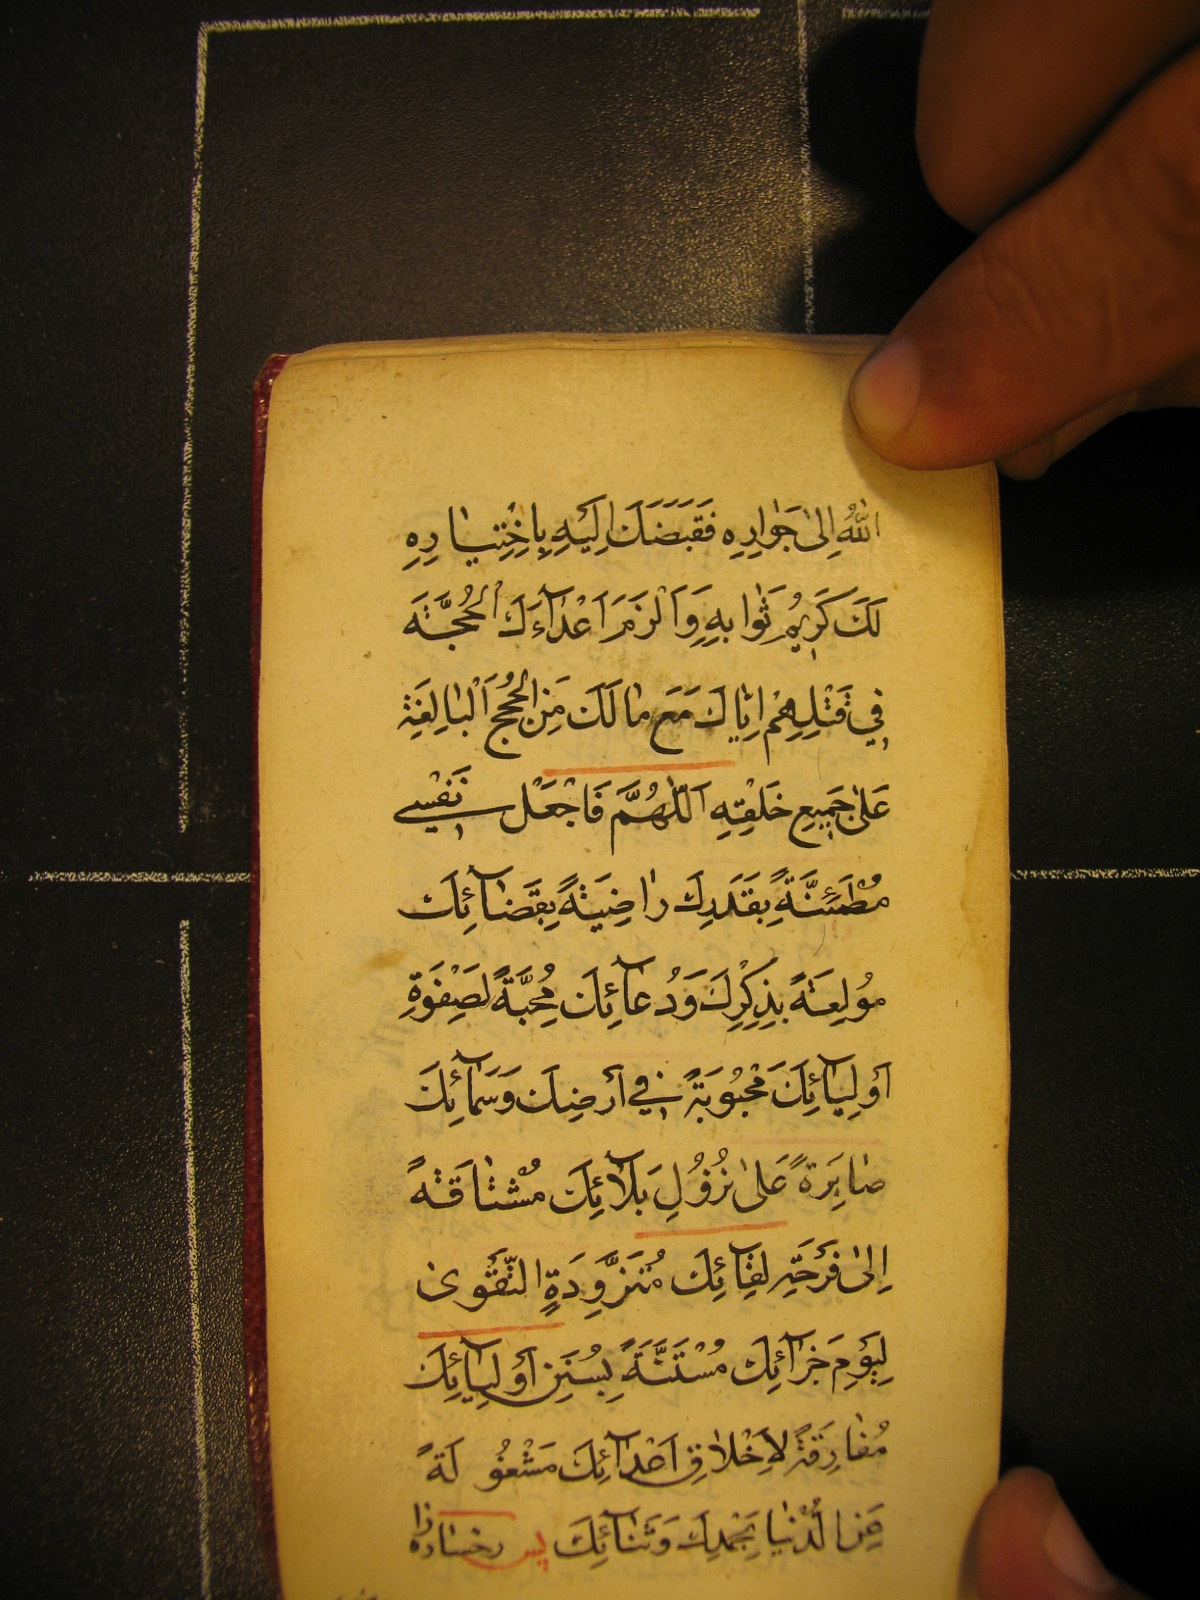 اللهُ اِلىٰ جَوارِهِ فَقَبَضَكَ اِلَيْهِ بِاخْتِيارِهِ
لَكَ كَرِيمُ ثَوابِهِ وَاَلْزَمَ اَعْدآءَكَ الْحُجَّةَ
فِي قَتْلِهِمْ اِيّاكَ مَعَ مالَكَ مِنَ الْحُجَجِ الْبالِغَةِ
عَلىٰ جَمِيعِ خَلْقِهِ اَللّٰهُمَّ فَاجْعَلْ نَفْسِي
مُطْمَئِنَّةً بِقَدَرِكَ راضِيَةً بِقَضآئِكَ
مُولِعَةً بِذِكْرِكَ وَدُعآئِكَ مُحِبَّةً لِصَفْوَةِ
اَوْلِيآئِكَ مَحْبُوبَةً فِي اَرْضِكَ وَسَمآئِكَ
صابِرَةً عَلىٰ نُزُولِ بَلآئِكَ مُشْتاقَةً
اِلىٰ فَرْحَةِ لِقآئِكَ مُتَزَوِّدَةً التَّقْوىٰ
لِيَوْمِ جَزآئِكَ مُسْتَنَّةً بِسُنَنِ اَوْلِيآئِكَ
مُفارِقَةً لِاَخْلاقِ اَعْدآئِكَ مَشْغُولَةً
عَنِ الدُّنْيا بِحَمْدِكَ وَثَنآئِكَ پس رخساره را